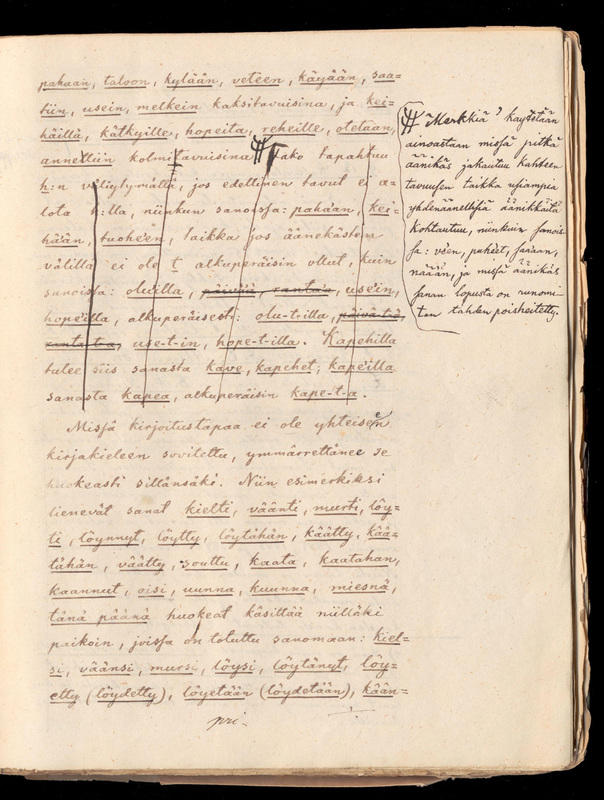 pahaan, taloon, kylään, veteen, käyään, saa=
tiin, usein, melkein kaksitavuisina, ja kei=
häillä, kätkyille, hopeita, reheille, otetaan,
annettiin kolmitavuisina # Jako tapahtuu
h:n väliytymättä, jos edellinen tavut ei a=
lota h:lla, niinkun sanoissa: paha'an, kei=
hä'än, tuohe'en, taikka jos äänekästen
välillä ei ole t alkuperäisin ollut, kuin
sanoissa: olu'illa, päivä'ä, ranta'a, use'in,
hope'illa, alkuperäisesti: olu-t-illa, päivä-t-ä,
ranta-t-a, use-t-in, hope-t-illa. Kapehilla
tulee siis sanasta kave, kapehet; kape'illa
sanasta kapea, alkuperäisin kape-t-a.
Missä kirjoitustapaa ei ole yhteiseen
kirjakieleen sovitettu, ymmärrettänee se
huokeasti sillänsäki. Niin esimerkiksi
lienevät sanat kielti, väänti, murti, löy=
ti, löynnyt, löytty, löytähän, käätty, kää=
tähän, väätty, souttu, kaata, kaatahan,
kaannut, oisi, uunna, kuunna, miesnä,
tänä päänä huokeat käsittää niilläki
paikoin, joissa on totuttu sanomaan: kiel=
si,väänsi, mursi, löysi, löytänyt, löy=
etty (löydetty), löyetään (löydetään), kään=
pri-
# Merkkiä ' käytetään
ainoastaan missä pitkä
äänikäs jakautuu kahteen
tavuusen taikka usiampia
yhdenäänellisiä äänikkäitä
kohtautuu, niinkuin sanois=
sa: ve'en, puhe'et, sa'aan,
nä'ään, ja missä äänikäs
sanan lopusta on runomi=
tan tähden poisheitetty.